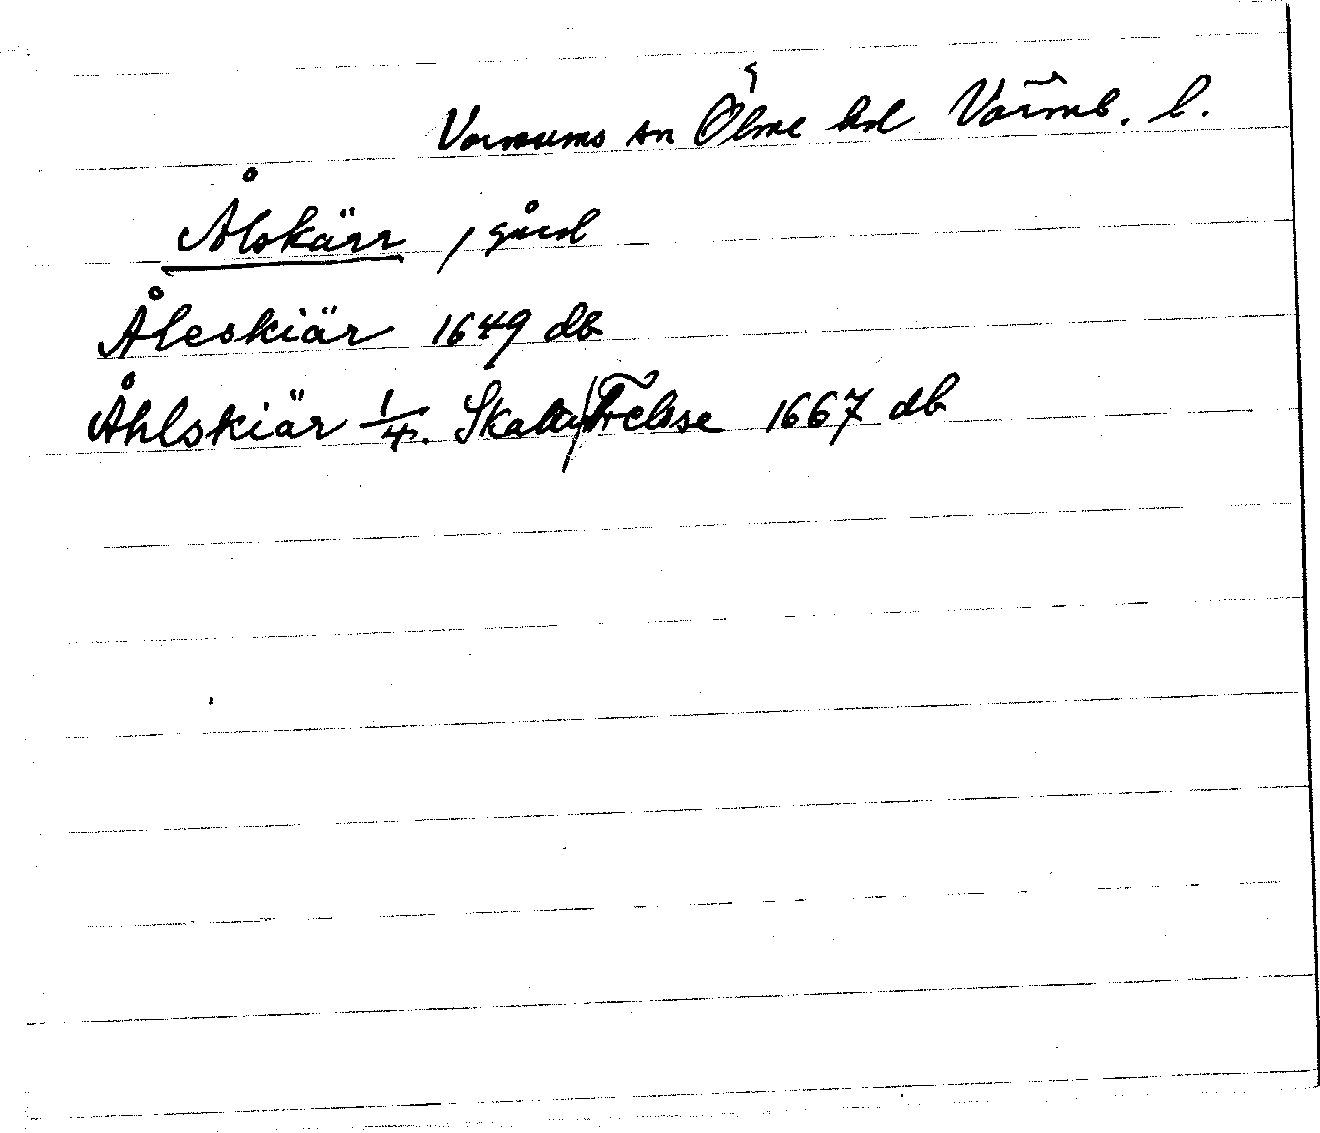 Varnums sn Ölme hd Värml. l.
Ålskärr, gård
Åleskiär 1649 db
Åhlskiär 1/4. Skatte/Frelsse 1667 db